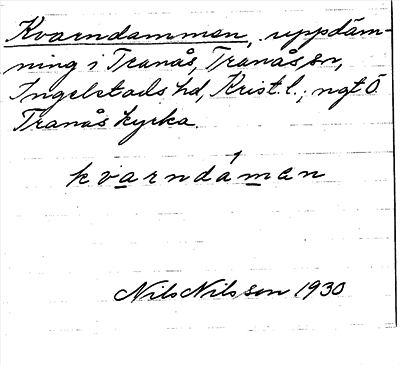 Kvarndammen, uppdäm-
ning i Tranås, Tranås sn,
Ingelstads hd, Krist. l.; ngt Ö
Tranås kyrka.
kvarndáman
Nils Nilsson 1930